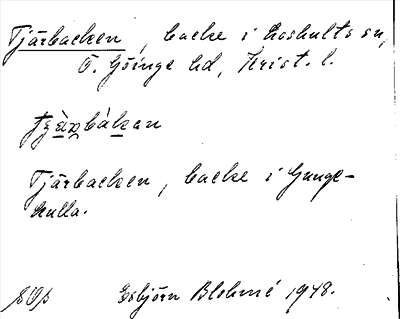 Tjärbacken, backe i Loshults sn,
Ö. Göinge hd, Krist. l.
Tjärbacken, backe i Gunge-
kulla.
Esbjörn Blohmé 1948.